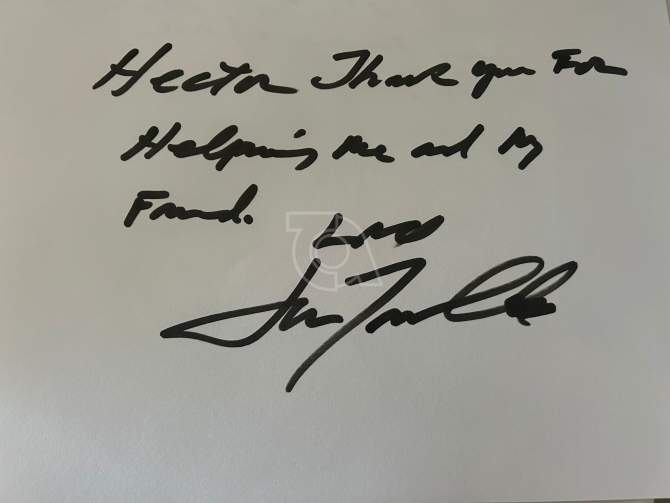 Hector Thank you For
Helping me and My
Friend. Love